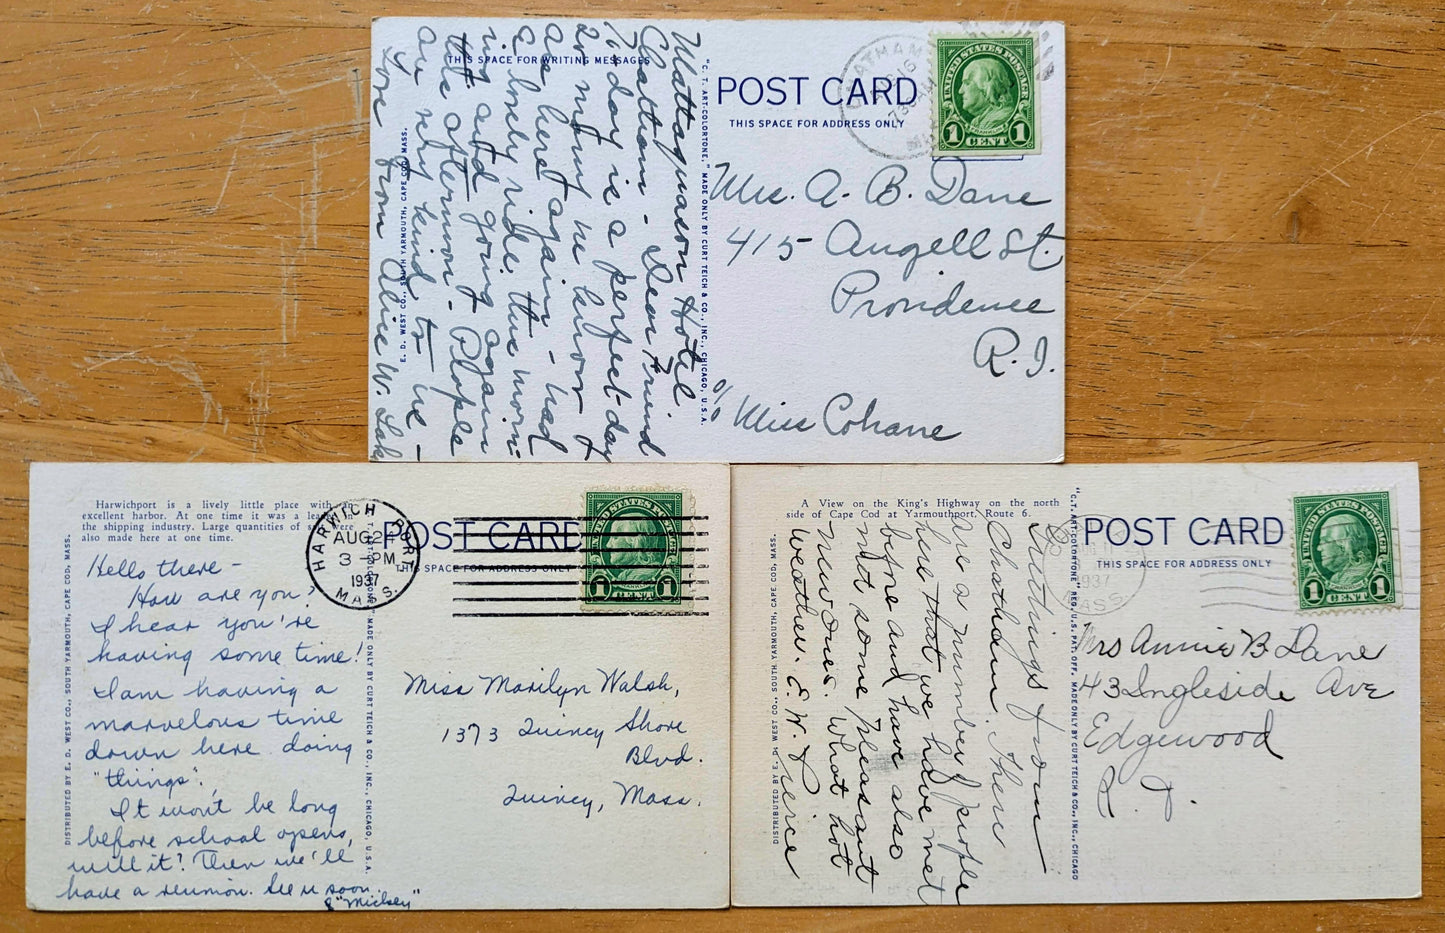 THIS SPACE FOR WRITING MESSAGES
Mattaquason Hotel
Chatham - Dear Friend
To day is a perfect day
20 mount he honor of
are here again - had
a lovely ride this morn-
ing and going again
this afternoon - People
are very kind to me -
Love from Alice W. Lake
E. D. WEST CO., SOUTH YARMOUTH, CAPE COD, MASS.
"C. T. ART-COLORTONE," MADE ONLY BY CURT TEICH & CO., INC., CHICAGO, U.S.A.
POST CARD
THIS SPACE FOR ADDRESS ONLY
CHATHAM
16
730 AM
UNITED STATES POSTAGE
FRANKLIN
1 CENT 1
Mrs. A. B. Dane
415 Angell St.
Providence
R.I.
c/o
Miss Cohane
Harwichport is a lively little place with an
excellent harbor. At one time it was a leader
the shipping industry. Large quantities of salt were
also made here at one time.
DISTRIBUTED BY E. D. WEST CO., SOUTH YARMOUTH, CAPE COD, MASS.
Hello there -
How are you?
I hear you're
having some time!
I am having a
marvelous time
down here doing
"things".
It won't be long
before school opens,
will it? Then we'll
have a reunion. See u soon.
"Mickey"
HARWICH PORT
AUG 24
3 - PM
1937
MASS.
C. T. ART-COLORTONE" MADE ONLY BY CURT TEICH & CO., INC., CHICAGO, U.S.A.
POST CARD
THIS SPACE FOR ADDRESS ONLY
UNITED STATES POSTAGE
1 CENT 1
Miss Marilyn Walsh,
1373 Quincy Shore
Blvd.
Quincy, Mass.
A View on the King's Highway on the north
side of Cape Cod at Yarmouthport, Route 6.
DISTRIBUTED BY E. D. WEST CO., SOUTH YARMOUTH, CAPE COD, MASS.
Greetings from
Chatham. There
are a number of people
here that we have met
before and have also
met some pleasant
new ones. What hot
weather. E. W. Pierce
"C.T. ART-COLORTONE" REG. U.S. PAT. OFF. MADE ONLY BY CURT TEICH & CO., INC., CHICAGO
POST CARD
THIS SPACE FOR ADDRESS ONLY
AUG 11
1937
MASS.
UNITED STATES POSTAGE
1 CENT 1
Mrs Annie B Dane
43 Ingleside Ave
Edgewood
R. I.